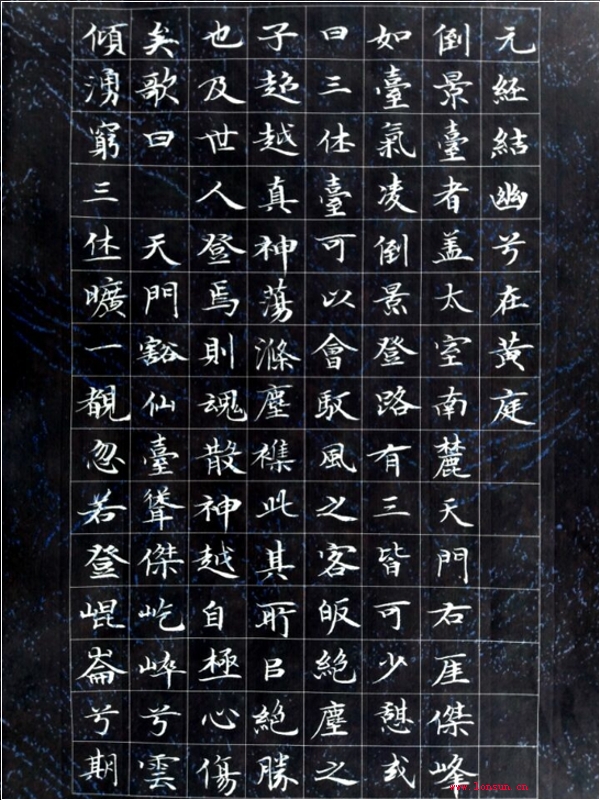 元経結幽兮在黄庭
倒景臺者盖太室南麓天門右厓傑峰
如臺氣凌倒景登路有三皆可少憩或
曰三休臺可以會馭風之客皈絕塵之
子超越真神蕩滌塵襍此其所㠯絕勝
也及世人登焉則魂散神越自極心傷
矣歌曰 天門豁仙臺聳傑屹崒兮雲
傾湧窮三休曠一覩忽若登崐崙兮期